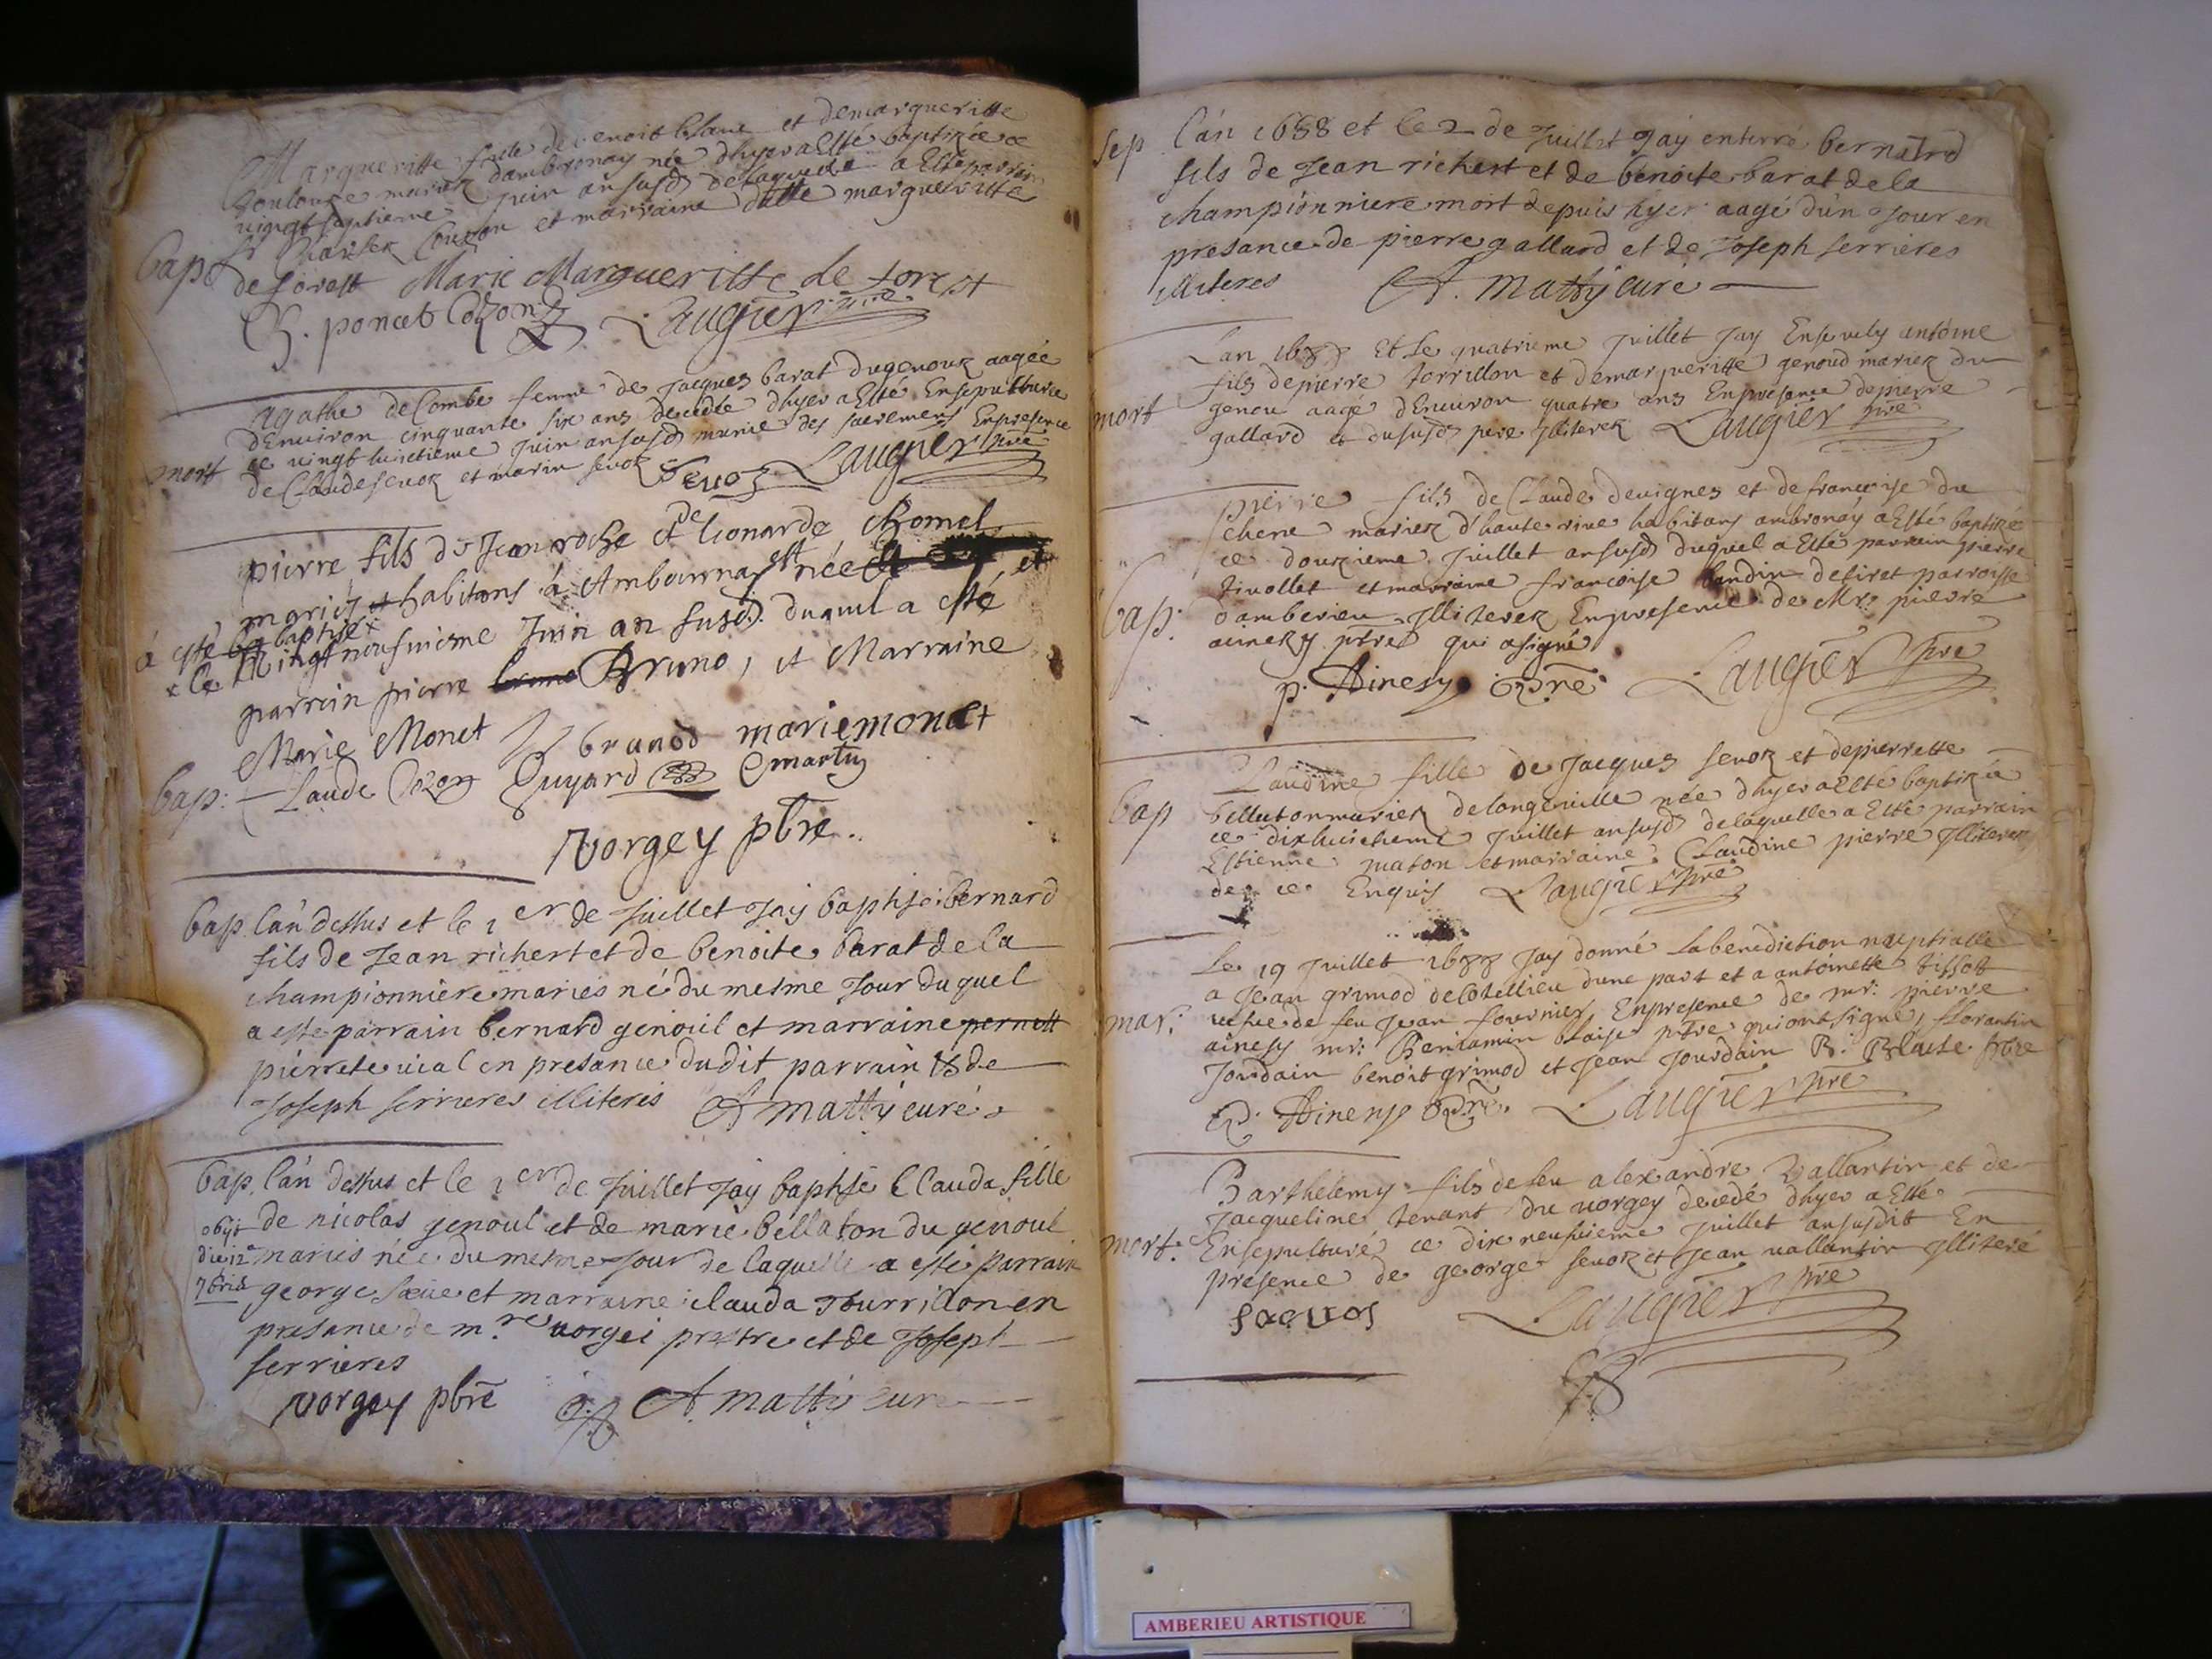 Margueritte fille de benoit blanc et demargueritte
Toulouze mariez dambronay née dhyer a Esté baptizée ce
vingt septieme Juin an susd de laquelle a Esté parrain
sr Couzon et marraine dlle margueritte
Bap
de forest Marie Margueritte de forest
poncet Cozon Laugier pre
agathe deCombe femme de Jacques barat dugenouz aagée
dEnuiron cinquante six ans decedée dhyer a Esté Ensepulturée
mort ce vingt huictieme Juin an susd munie des sacremens Enpresence
de Claude seuoz et marin seuoz Seuoz Laugier pre
pierre fils de Jean roche et de lionarde Chomel
mariés et habitans à Ambournay est née
a esté baptisé
ce Vingt neufuieme Juin an susd. duquel a esté
parrain pierre bruno Bruno, et Marraine
Marie Monet brunod mariemonet
bap: Claude Cozon Guyard Cmartin
Vorgey pbre.
bap. l'an dessus et le 1er de Juillet Jay baptisé bernard
fils de Jean richert et de benoite barat de la
championniere mariés né du mesme Jour duquel
a esté parrain bernard genoul et marraine pernett
pierrete uial en presance dudit parrain & de
Joseph serrieres illiterés A matty curé
bap. l'an dessus et le 1er de Juillet Jay baptisé Clauda fille
obyt de nicolas genoul et de marie bellaton du genoul
die 12 mariés née du mesme Jour de laquelle a esté parrain
7bris george et marraine clauda Tourrillon en
presance de mre uorgei prestre et de Joseph
serrieres
Vorgey pbre A matty curé
sep l'an 1688 et le 2 de Juillet Jay enterré bernard
fils de Jean richert et de benoite barat de la
championniere mort depuis hyer aagé d'un Jour en
presance de pierre gallard et de Joseph serrieres
illiteres A. matty curé
Lan 1688 Et Le quatrieme Juillet Jay Enseuely antoine
fils depierre torrillon et demargueritte genoud mariez du
mort genou aagé dEnuiron quatre ans Enpresence depierre
gallard et dususd pere Jlliterez Laugier pre
pierre fils de Claude deuignes et de francoise du
chene mariez d'hauterive habitans ambronay a Esté baptizé
ce douzieme Juillet an susd duquel a Esté parrain pierre
bap: tiuollet et marraine francoise baudin detiret parroisse
d'amberieu Jlliterez Enpresence de Mr: pierre
ainezy pbre qui asigné
p. Ainesy pbre Laugier pre
Claudine fille de Jacques seuoz et depierrette
bap bellaton mariez delongeuille née dhyer a Esté baptizée
ce dixhuictieme Juillet an susd delaquelle a Esté parrain
Estienne maton et marraine Claudine pierre Jlliterez
de ce Enquis Laugier pre
Le 19 Juillet 1688 Jay donné la benediction nuptialle
a Jean grimod deCotellieu dune part et a antoinette tissot
mar: uefue de feu Jean fournier, Enpresence de mr: pierre
ainesy mr: Beniamin blaise pbre quiont signé, florantin
Jourdain benoit grimod et Jean Jourdain B. Blaise pbre
P. Ainesy pbre. Laugier pre
Barthelemy fils de feu alexandre Vallantin et de
Jacqueline tenant du uorgey decedé dhyer a Esté
mort: Ensepulturé ce dix neufuieme Juillet an susdit En
presence de george seuoz et Jean uallantin Jlliteré
Laugier pre
AMBERIEU ARTISTIQUE